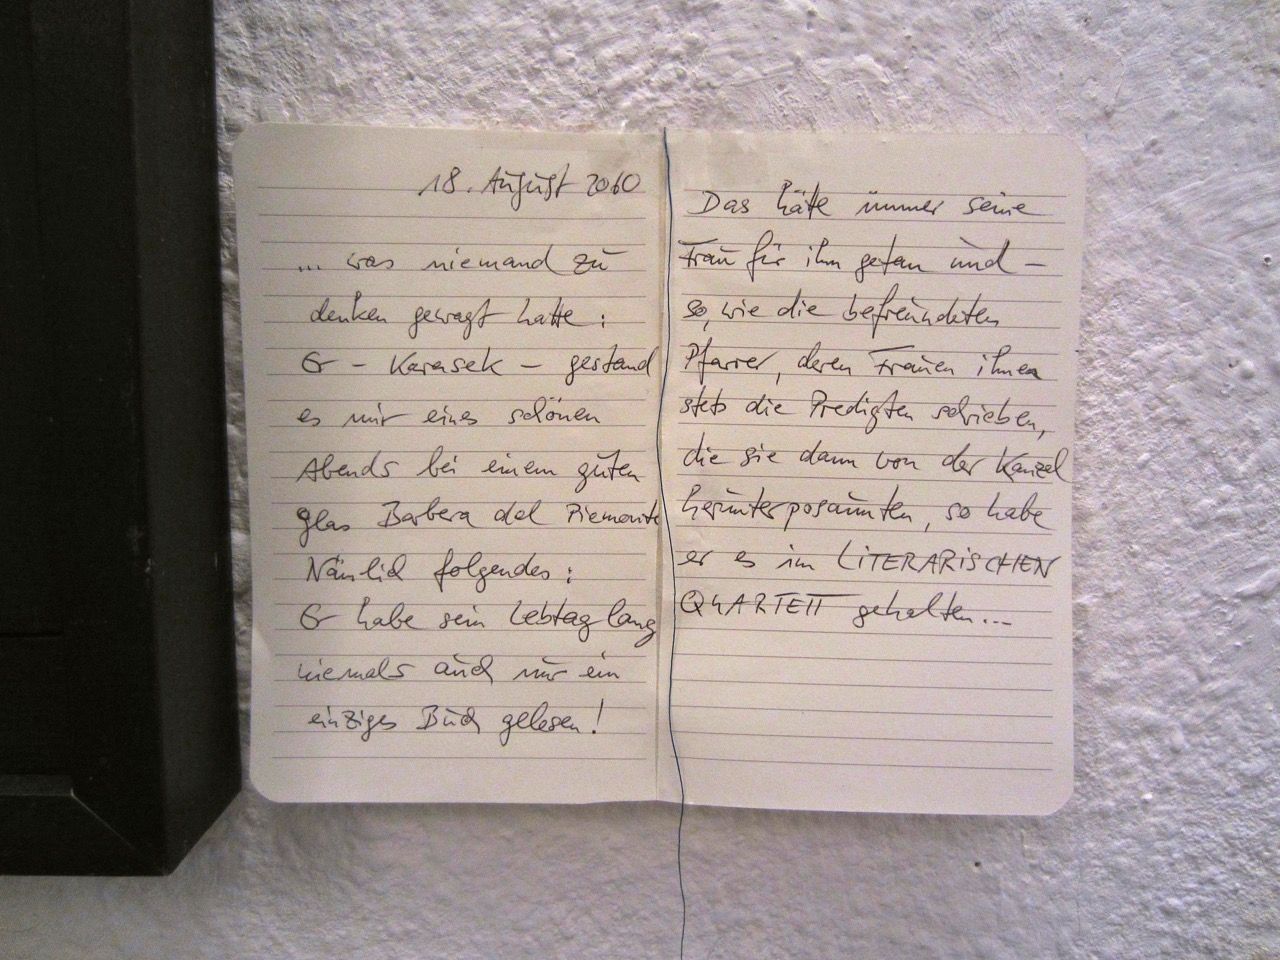 18. August 2060
... was niemand zu
denken gewagt hatte:
Er – Karasek – gestand
es mir eines schönen
Abends bei einem guten
glas Barbera del Piemonte
Nämlich folgendes:
Er habe sein Lebtag lang
niemals auch nur ein
einziges Buch gelesen!
Das hätte immer seine
Frau für ihn getan und –
so, wie die befreundeten
Pfarrer, deren Frauen ihnen
stets die Predigten schrieben,
die sie dann von der Kanzel
herunterposaunten, so habe
er es im LITERARISCHEN
QUARTETT gehalten...